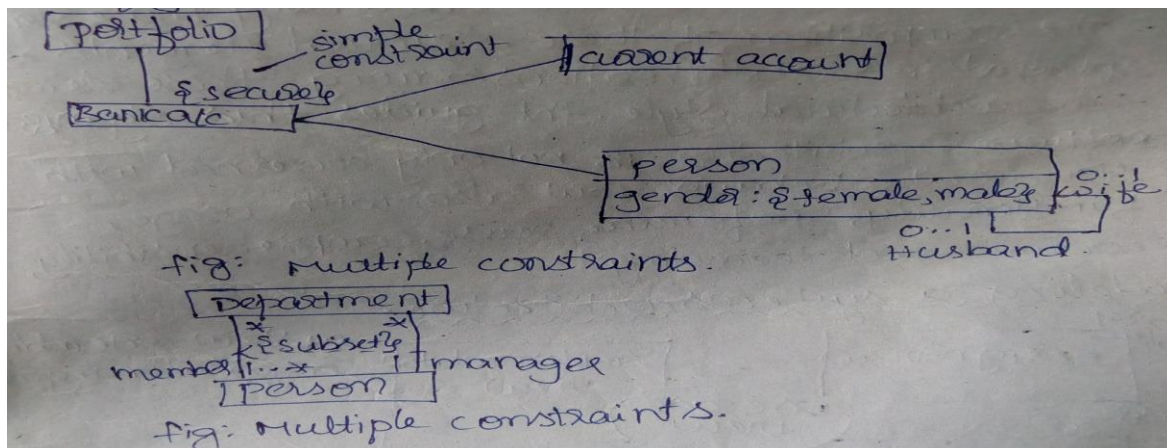 Portfolio
simple
constraint
current account
{secure}
Bank a/c
person
gender: {female, male}
0..1
wife
0...1
Husband.
fig: Multiple constraints.
Department
* *
{subset}
member 1..* 1 manager
person
fig: Multiple constraints.